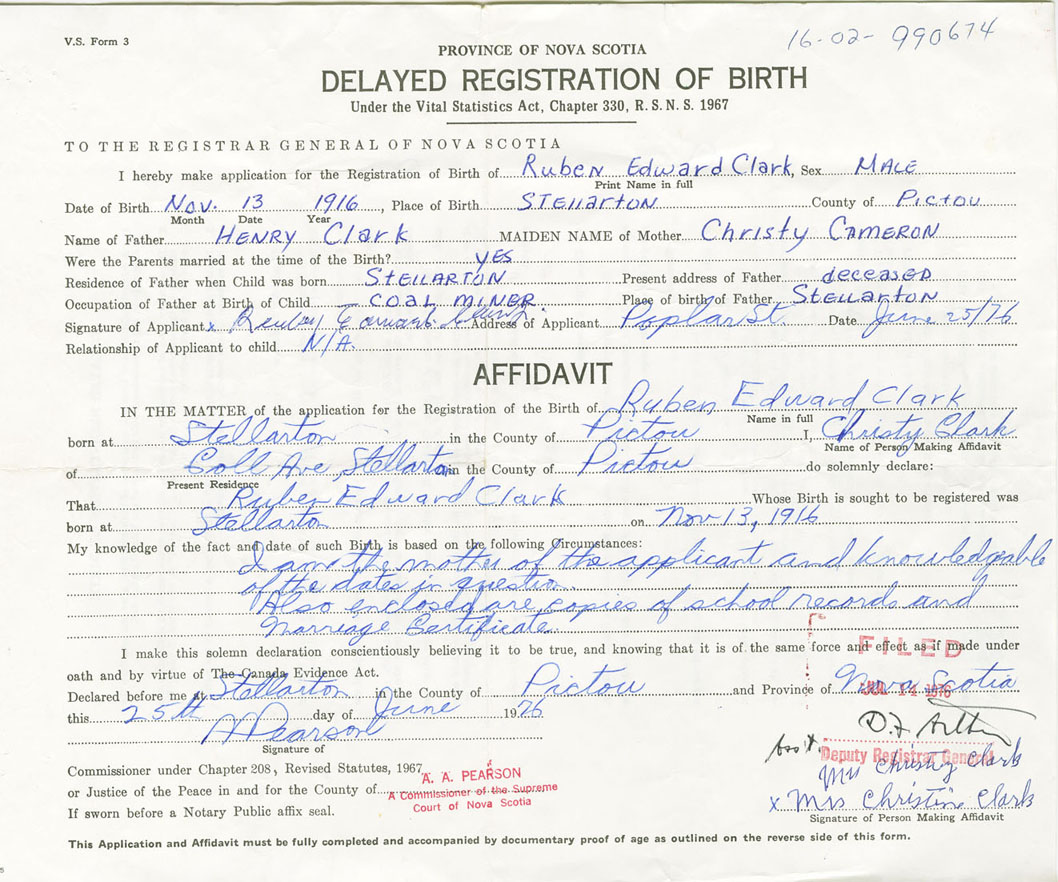 V.S. Form 3
16-02-990674
PROVINCE OF NOVA SCOTIA
DELAYED REGISTRATION OF BIRTH
Under the Vital Statistics Act, Chapter 330, R.S.N.S. 1967
TO THE REGISTRAR GENERAL OF NOVA SCOTIA
I hereby make application for the Registration of Birth of Ruben Edward Clark, Sex MALE
Print Name in full
Date of Birth Nov. 13 1916, Place of Birth STEllARTON County of PICTOU
Month Date Year
Name of Father HENRY Clark MAIDEN NAME of Mother Christy CAMERON
Were the Parents married at the time of the Birth? yES
Residence of Father when Child was born STEllARTON Present address of Father deceASED
Occupation of Father at Birth of Child - COAL MINER Place of birth of Father STEllARTON
Signature of Applicant x Edward Address of Applicant Poplar St. Date June 25/76
Relationship of Applicant to child N/A.
AFFIDAVIT
IN THE MATTER of the application for the Registration of the Birth of Ruben Edward Clark
Name in full
born at Stellarton in the County of Pictou I, Christy Clark
Name of Person Making Affidavit
of Coll Ave, Stellarton in the County of Pictou do solemnly declare:
Present Residence
That Ruben Edward Clark Whose Birth is sought to be registered was
born at Stellarton on Nov 13, 1916
My knowledge of the fact and date of such Birth is based on the following Circumstances:
I am the mother of the applicant and knowledgeable
of the dates in question
Also enclosed are copies of school records and
Marriage Certificate
I make this solemn declaration conscientiously believing it to be true, and knowing that it is of the same force and effect as if made under
FILED
oath and by virtue of The Canada Evidence Act.
Declared before me at Stellarton in the County of Pictou and Province of Nova Scotia
JUL 14 1976
this 25th day of June 1976
A A Pearson
Signature of
Asst.
Deputy Registrar General
Commissioner under Chapter 208, Revised Statutes, 1967
Mrs Christy Clark
A. A. PEARSON
or Justice of the Peace in and for the County of
A Commissioner of the Supreme
Court of Nova Scotia
x Mrs Christine Clark
If sworn before a Notary Public affix seal.
Signature of Person Making Affidavit
This Application and Affidavit must be fully completed and accompanied by documentary proof of age as outlined on the reverse side of this form.